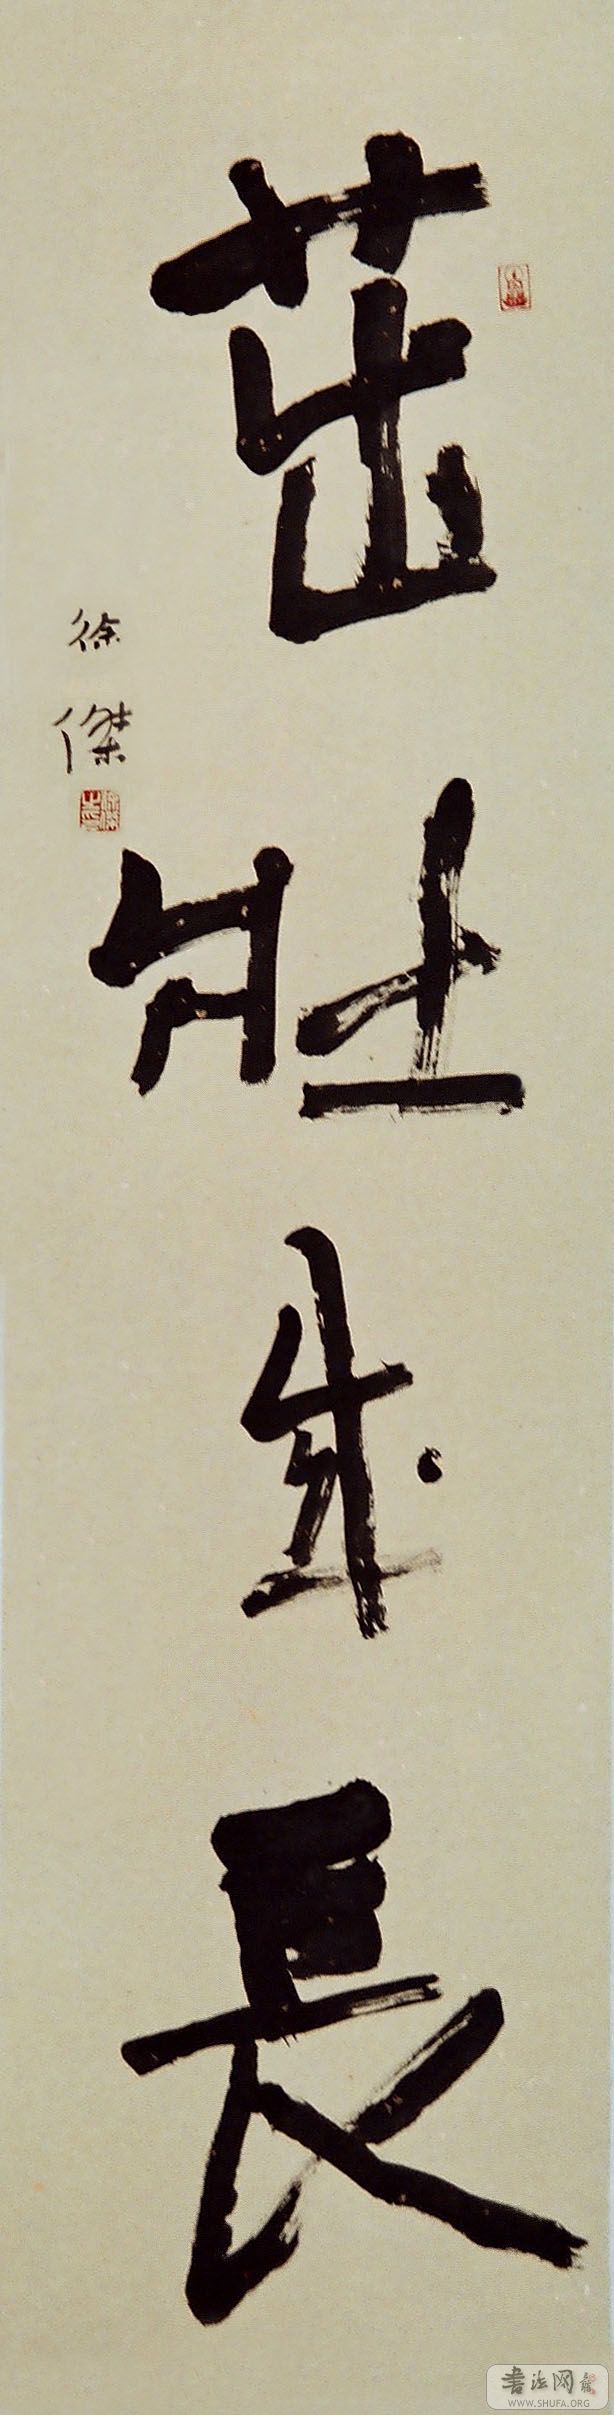 茁壯成長
徐傑
书法网
WWW.SHUFA.ORG